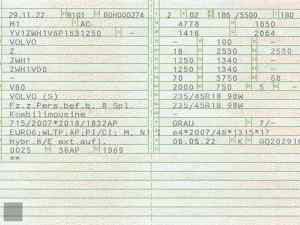 29.11.22 0101 00H000274
M1 AC
YV1ZWH1V6P1531250 -
VOLVO
Z
ZWH1
ZWH1VD0
-
V60
VOLVO (S)
Fz.z.Pers.bef.b. 8 Spl.
Kombilimousine
715/2007*2018/1832AP
EURO6;WLTP;AP;PI/CI; M, N1
Hybr.B/E ext.aufl.
0025 36AP 1969
**
2 02 186 /5500 180
4778 1850
1416 2064
- 100 -
18 2530 2530
1250 1340 -
1250 1340 -
70 3750 68
2000 750 5 -
235/45R18 98W
235/45R18 98W
-
GRAU 7/-
e4*2007/46*1315*17
06.05.22 K